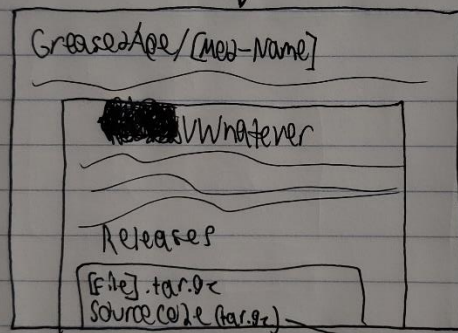 GreasedApe/[Mod-Name]
VWhatever
Releases
[File].tar.gz
Source code (tar.gz)